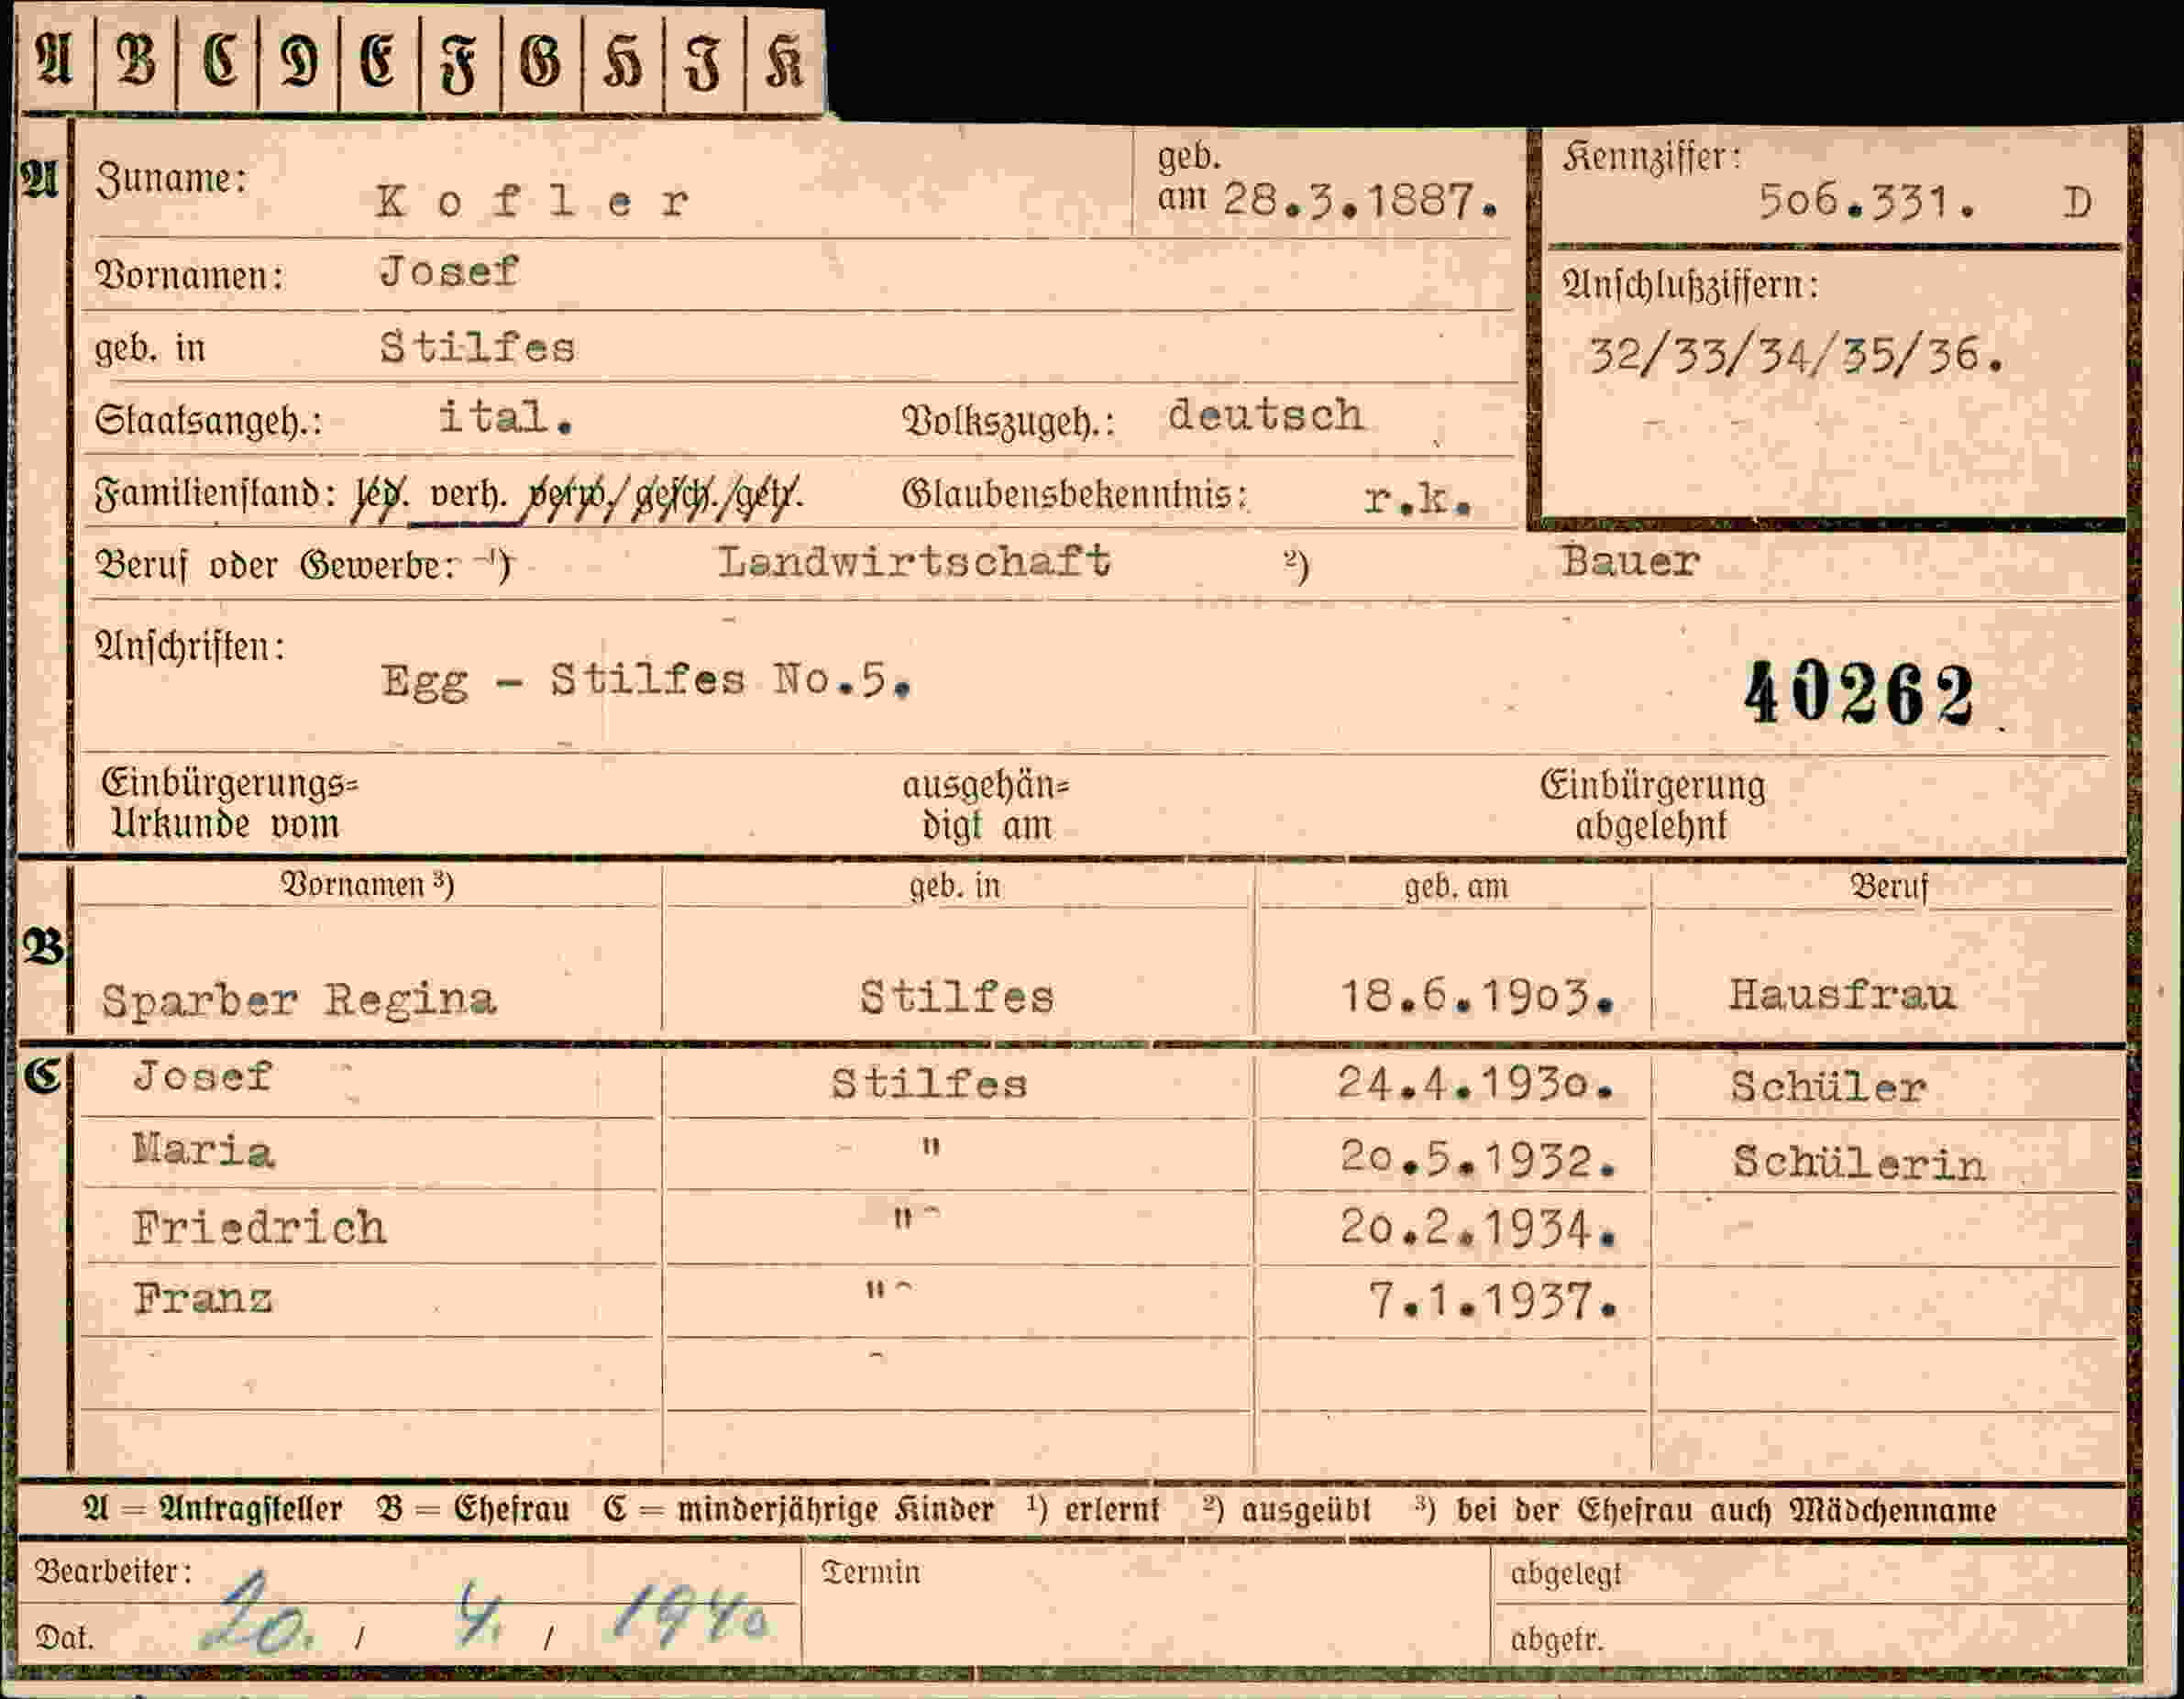 A B C D E F G H I K
A Zuname: Kofler geb. am 28.3.1887. Kennziffer: 506.331. D
Vornamen: Josef Anschlußziffern:
geb. in Stilfes 32/33/34/35/36.
Staatsangeh.: ital. Volkszugeh.: deutsch
Familienstand: led. verh. verw./gesch./getr. Glaubensbekenntnis: r.k.
Beruf oder Gewerbe: ¹) Landwirtschaft ²) Bauer
Anschriften: Egg - Stilfes No.5. 40262
Einbürgerungs= ausgehän= Einbürgerung
Urkunde vom digt am abgelehnt
Vornamen ³) geb. in geb. am Beruf
B Sparber Regina Stilfes 18.6.1903. Hausfrau
C Josef Stilfes 24.4.1930. Schüler
Maria " 20.5.1932. Schülerin
Friedrich " 20.2.1934.
Franz " 7.1.1937.
A = Antragsteller B = Ehefrau C = minderjährige Kinder ¹) erlernt ²) ausgeübt ³) bei der Ehefrau auch Mädchenname
Bearbeiter: Termin abgelegt
Dat. 20. / 4. / 1940 abgetr.